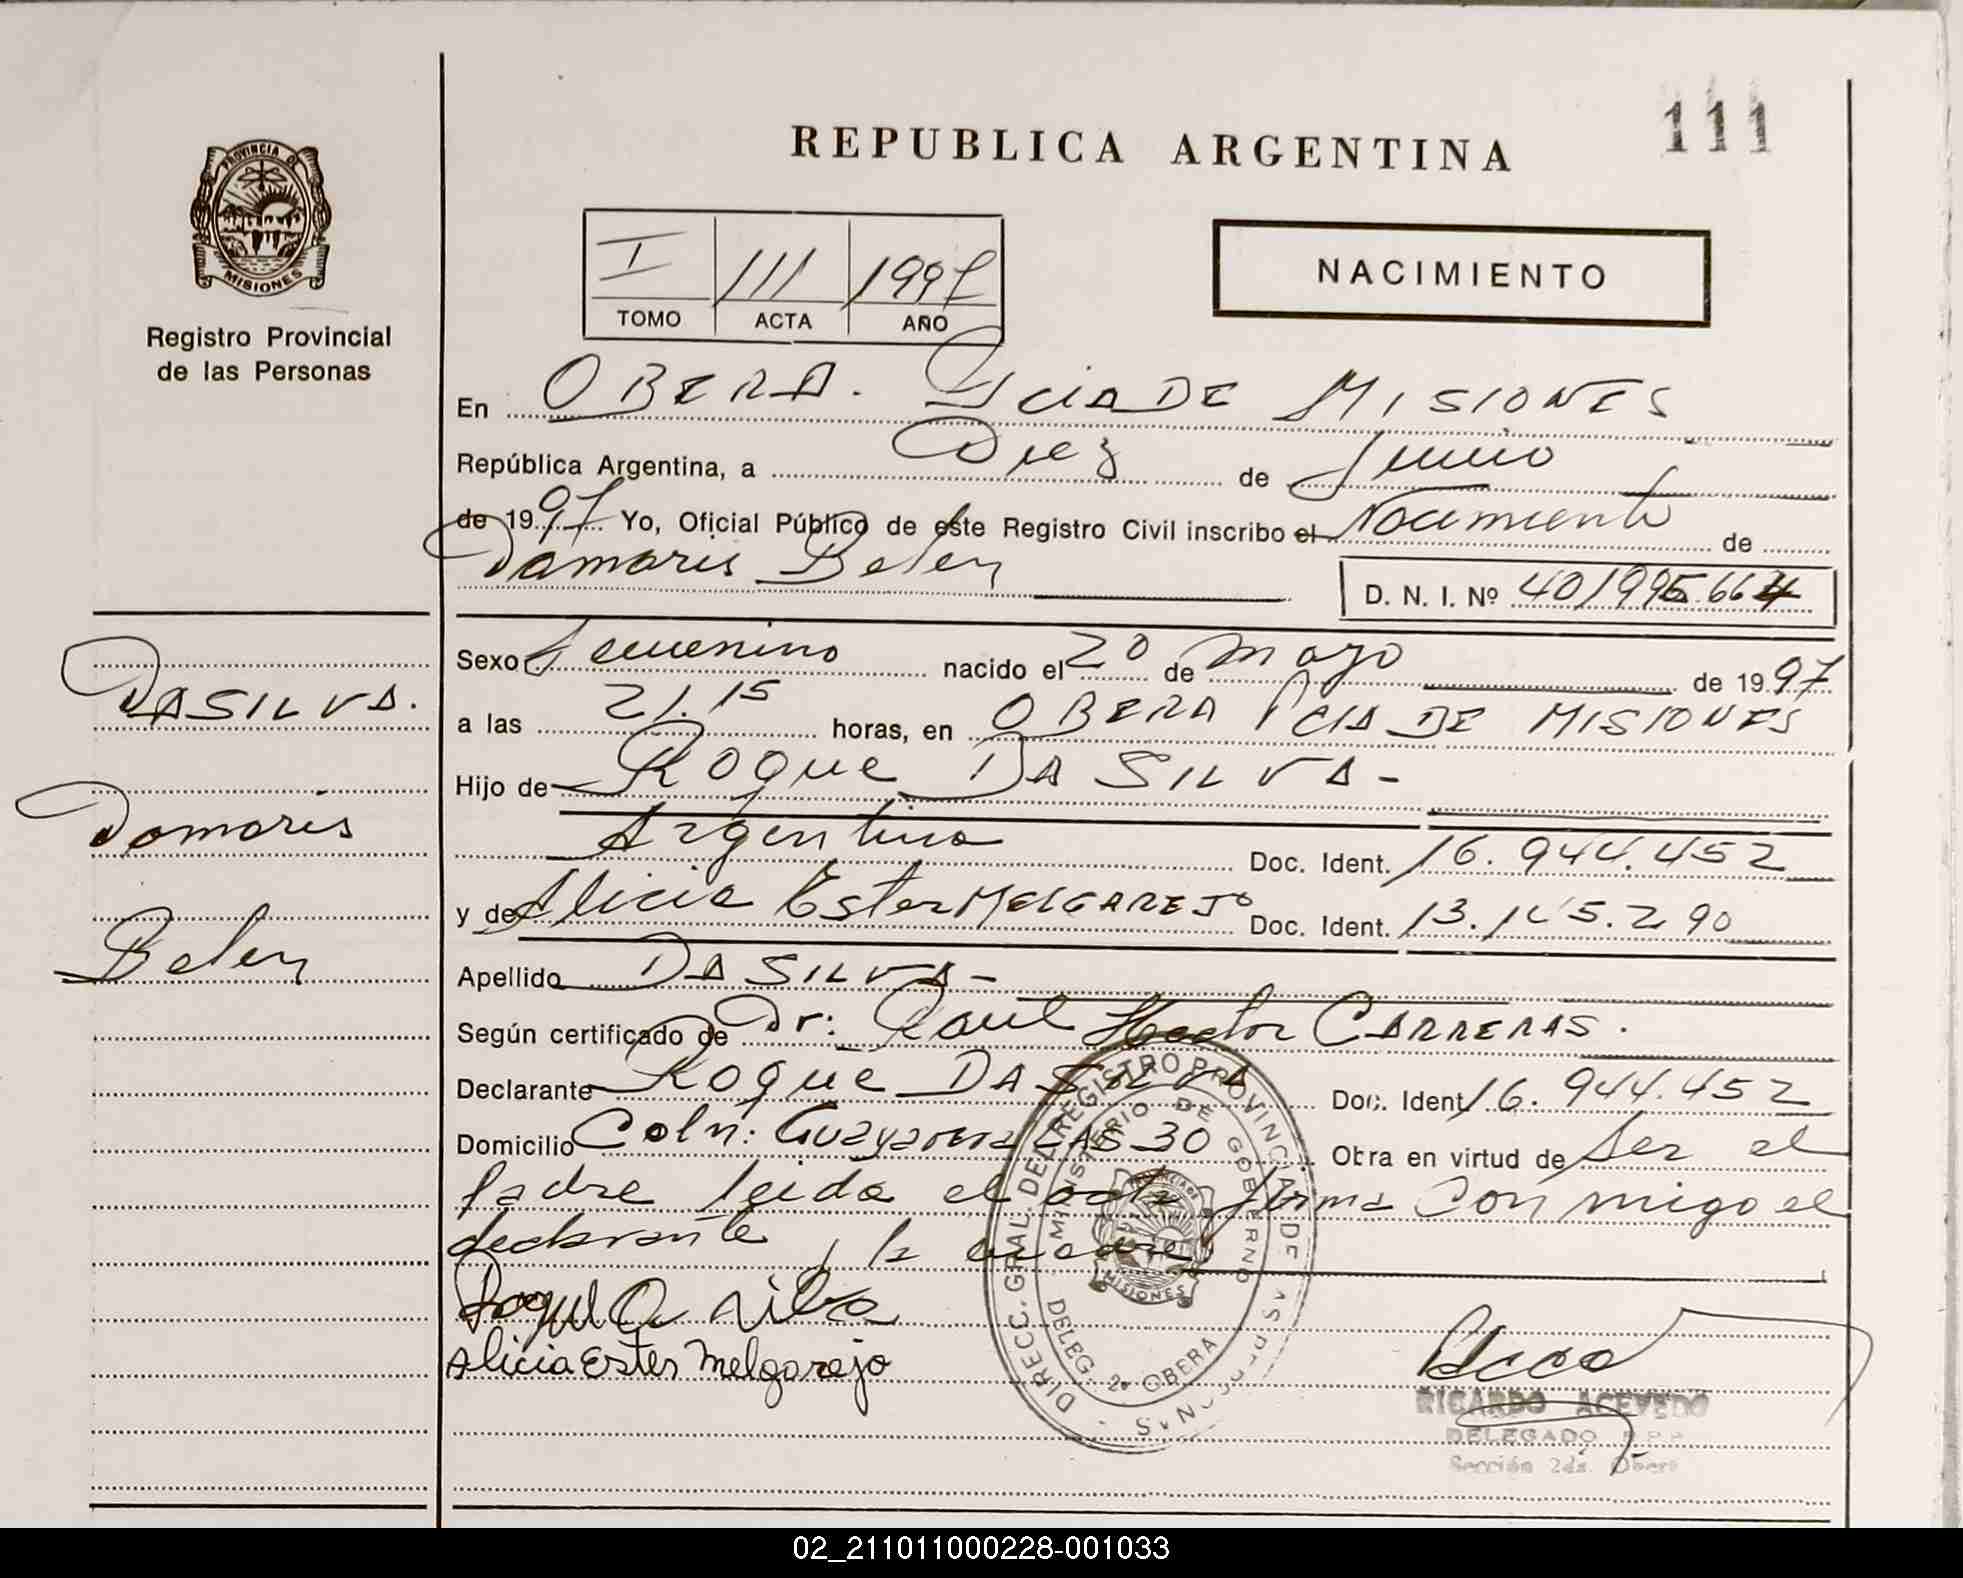 111
REPUBLICA ARGENTINA
PROVINCIA DE
MISIONES
Registro Provincial
de las Personas
I 111 1997
TOMO ACTA AÑO
NACIMIENTO
En OBERA. Pcia DE MISIONES
República Argentina, a Diez de Junio
de 1997 Yo, Oficial Público de este Registro Civil inscribo el Nacimiento de
Damaris Belen
D. N. I. Nº
DA SILVA.
Damaris
Belen
Sexo Femenino nacido el 20 de mayo de 1997
a las 21.15 horas, en OBERA PCIA DE MISIONES
Hijo de Roque DA SILVA-
Argentina Doc. Ident. 16.944.452
y de Alicia Ester MELGAREJO Doc. Ident.
Apellido DA SILVA-
Según certificado de Dr: Raul Hector CARRERAS.
Declarante Roque DA SILVA Doc. Ident 16.944.452
Domicilio Coln: Guayabera LAS 30 Obra en virtud de ser el
padre leida el acta firma conmigo el
declarante y la madre
Roque Da silva
Alicia Ester Melgarejo
DIRECC. GRAL. DEL REGISTRO PROVINCIAL DE LAS PERSONAS
MINISTERIO DE GOBIERNO
PROVINCIA DE
MISIONES
DELEG. 2ª OBERA
RICARDO ACEVEDO
DELEGADO R.P.P.
Sección 2da. Oberá
02_211011000228-001033